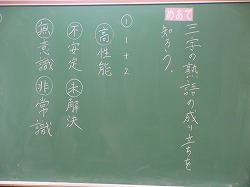 めあて
三字の熟語の成り立ちを
知ろう。
① 1+2
高性能
不安定 未解決
無意識 非常識